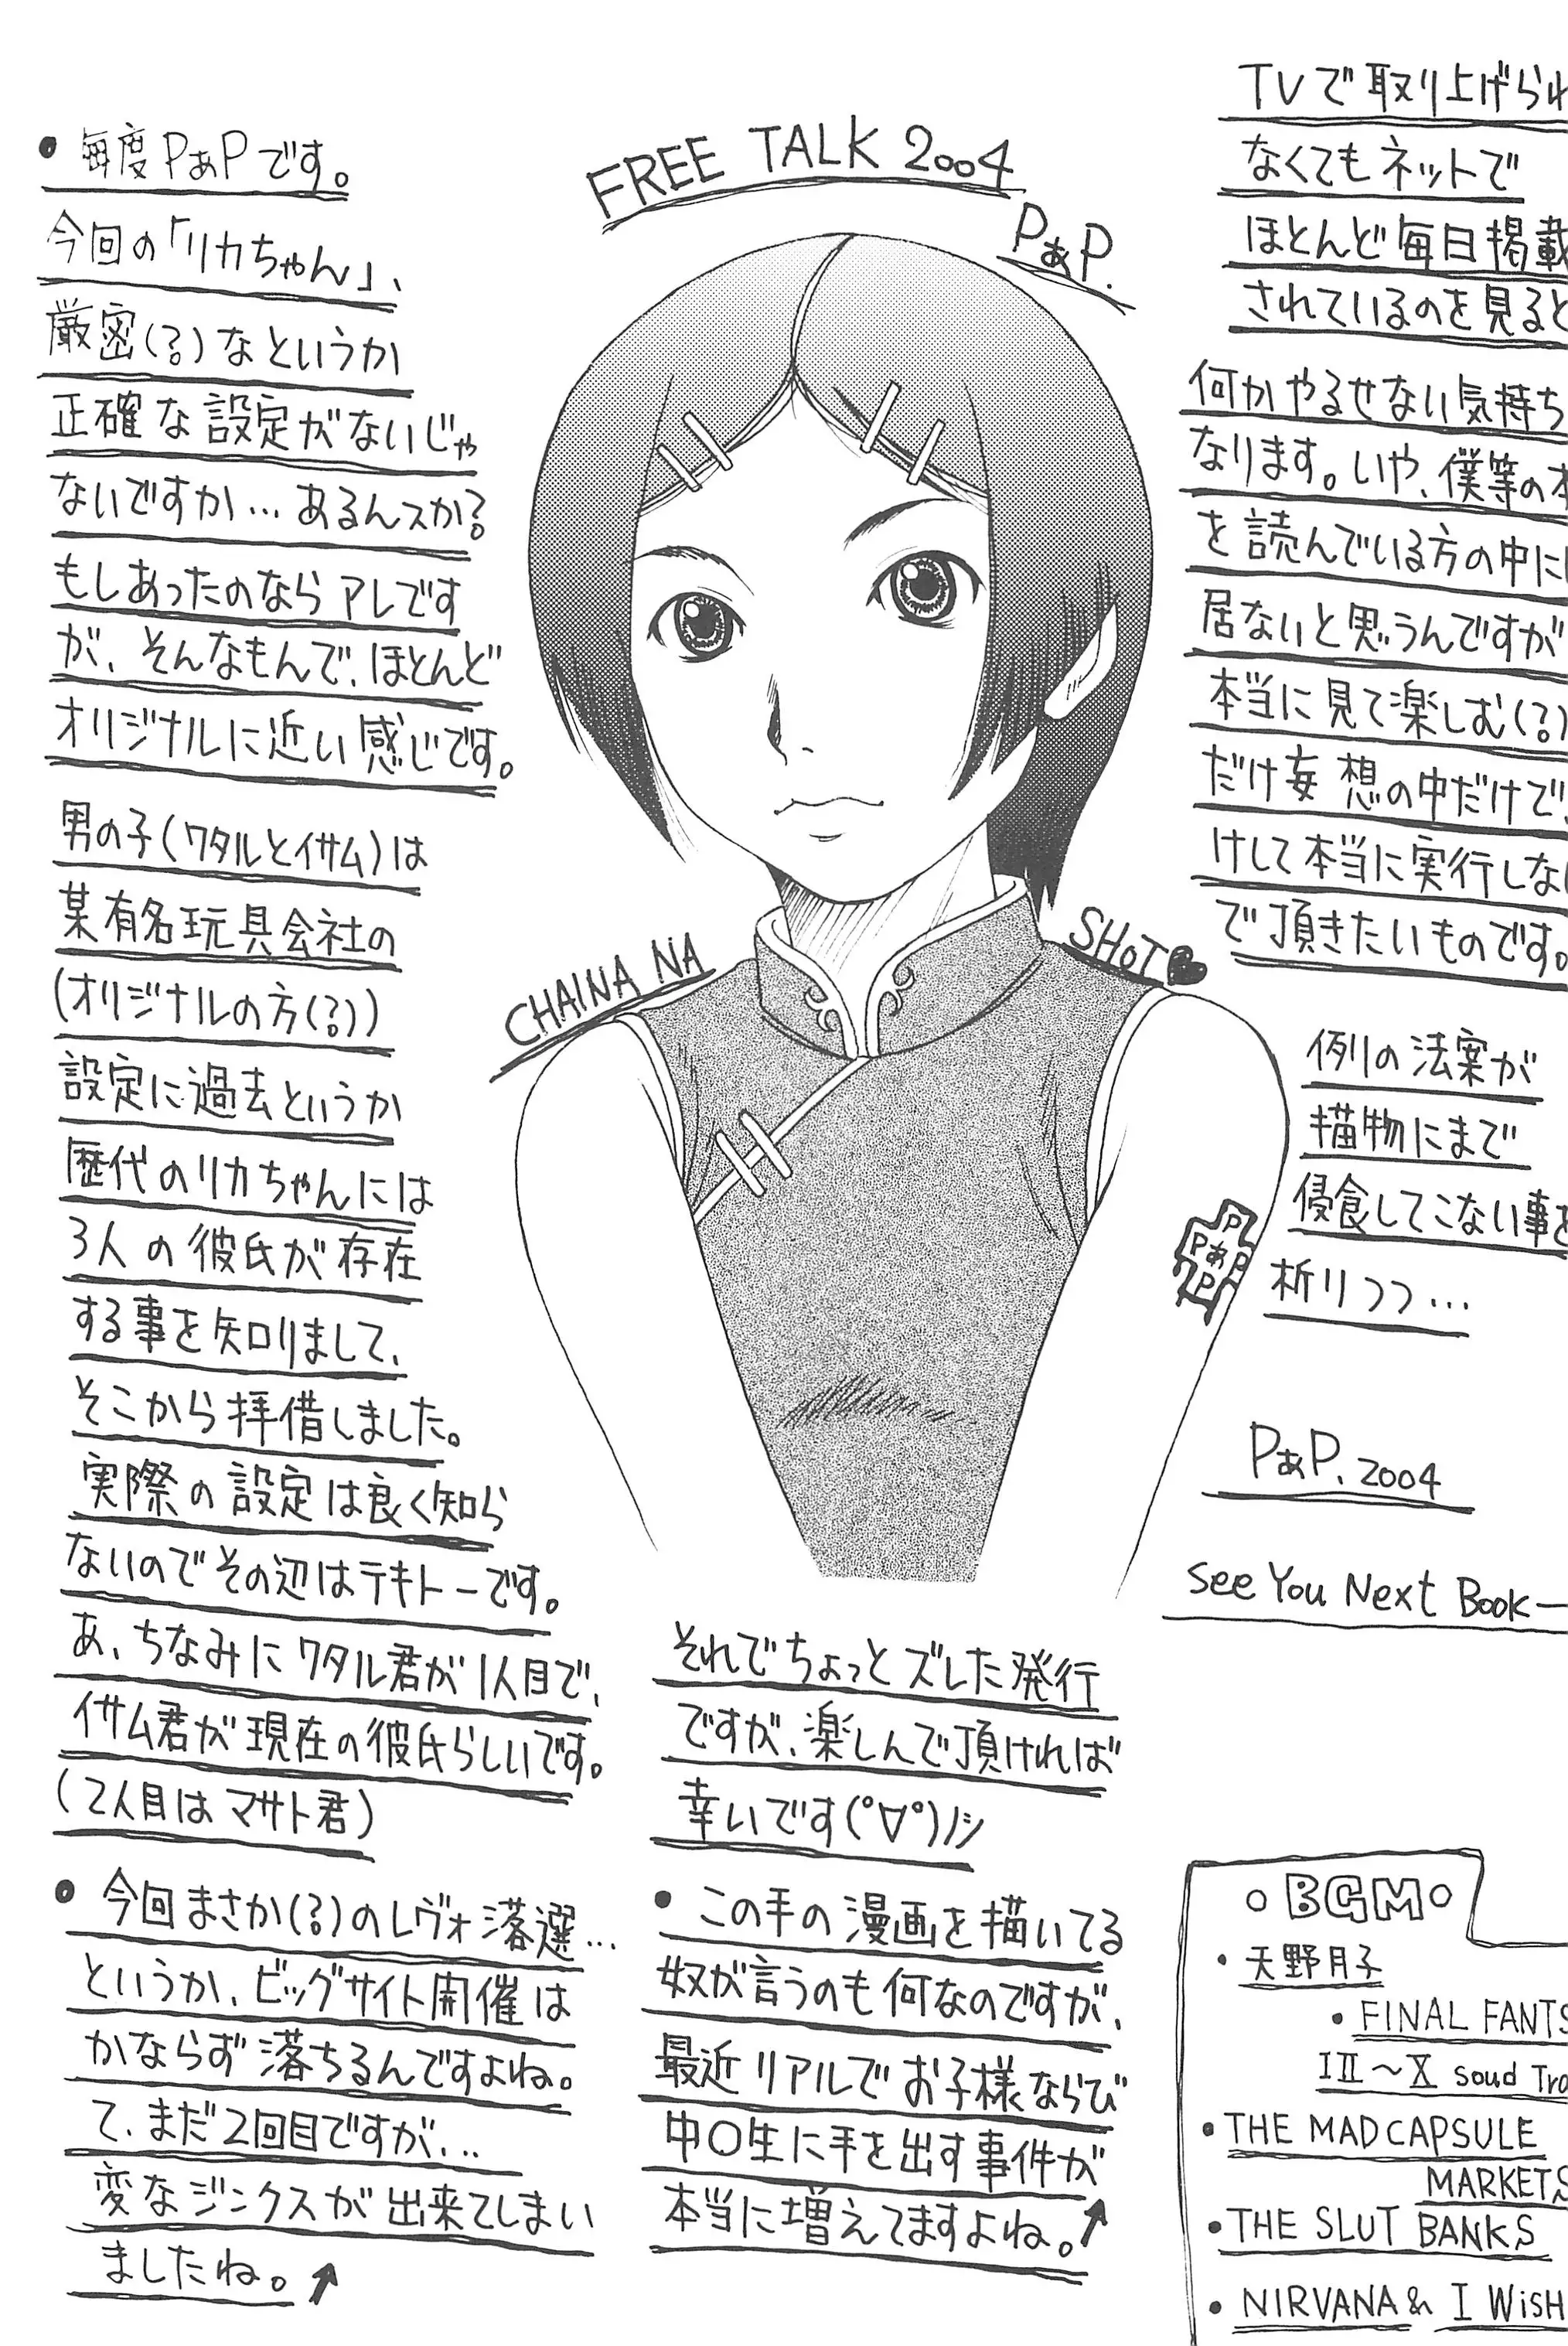 FREE TALK 2004
PぁP.
• 毎度PぁPです。
今回の「リカちゃん」、
厳密(?)なというか
正確な設定がないじゃ
ないですか…あるんスか?
もしあったのならアレです
が、そんなもんで、ほとんど
オリジナルに近い感じです。
男の子(ワタルとイサム)は
某有名玩具会社の
(オリジナルの方(?))
設定に過去というか
歴代のリカちゃんには
3人の彼氏が存在
する事を知りまして、
そこから拝借しました。
実際の設定は良く知ら
ないのでその辺はテキトーです。
あ、ちなみにワタル君が1人目で、
イサム君が現在の彼氏らしいです。
(2人目はマサト君)
• 今回まさか(?)のレヴォ落選…
というか、ビッグサイト開催は
かならず落ちるんですよね。
て、まだ2回目ですが…
変なジンクスが出来てしまい
ましたね。↑
CHAINA NA
SHOT♥
P
PぁP
P
それでちょっとズレた発行
ですが、楽しんで頂ければ
幸いです(°∀°)ノシ
• この手の漫画を描いてる
奴が言うのも何なのですが、
最近リアルでお子様ならび
中〇生に手を出す事件が
本当に増えてますよね。↑
TVで取り上げられ
なくてもネットで
ほとんど毎日掲載
されているのを見ると
何かやるせない気持ち
なります。いや、僕等の本
を読んでいる方の中に
居ないと思うんですが
本当に見て楽しむ(?)
だけ妄想の中だけで、
けして本当に実行しない
で頂きたいものです。
例の法案が
描物にまで
侵食してこない事を
祈りつつ…
PぁP. 2004
See You Next Book—
○BGM○
• 天野月子
• FINAL FANTS
III〜X soud Tra
• THE MAD CAPSULE
MARKETS
• THE SLUT BANKS
• NIRVANA & I WiSH